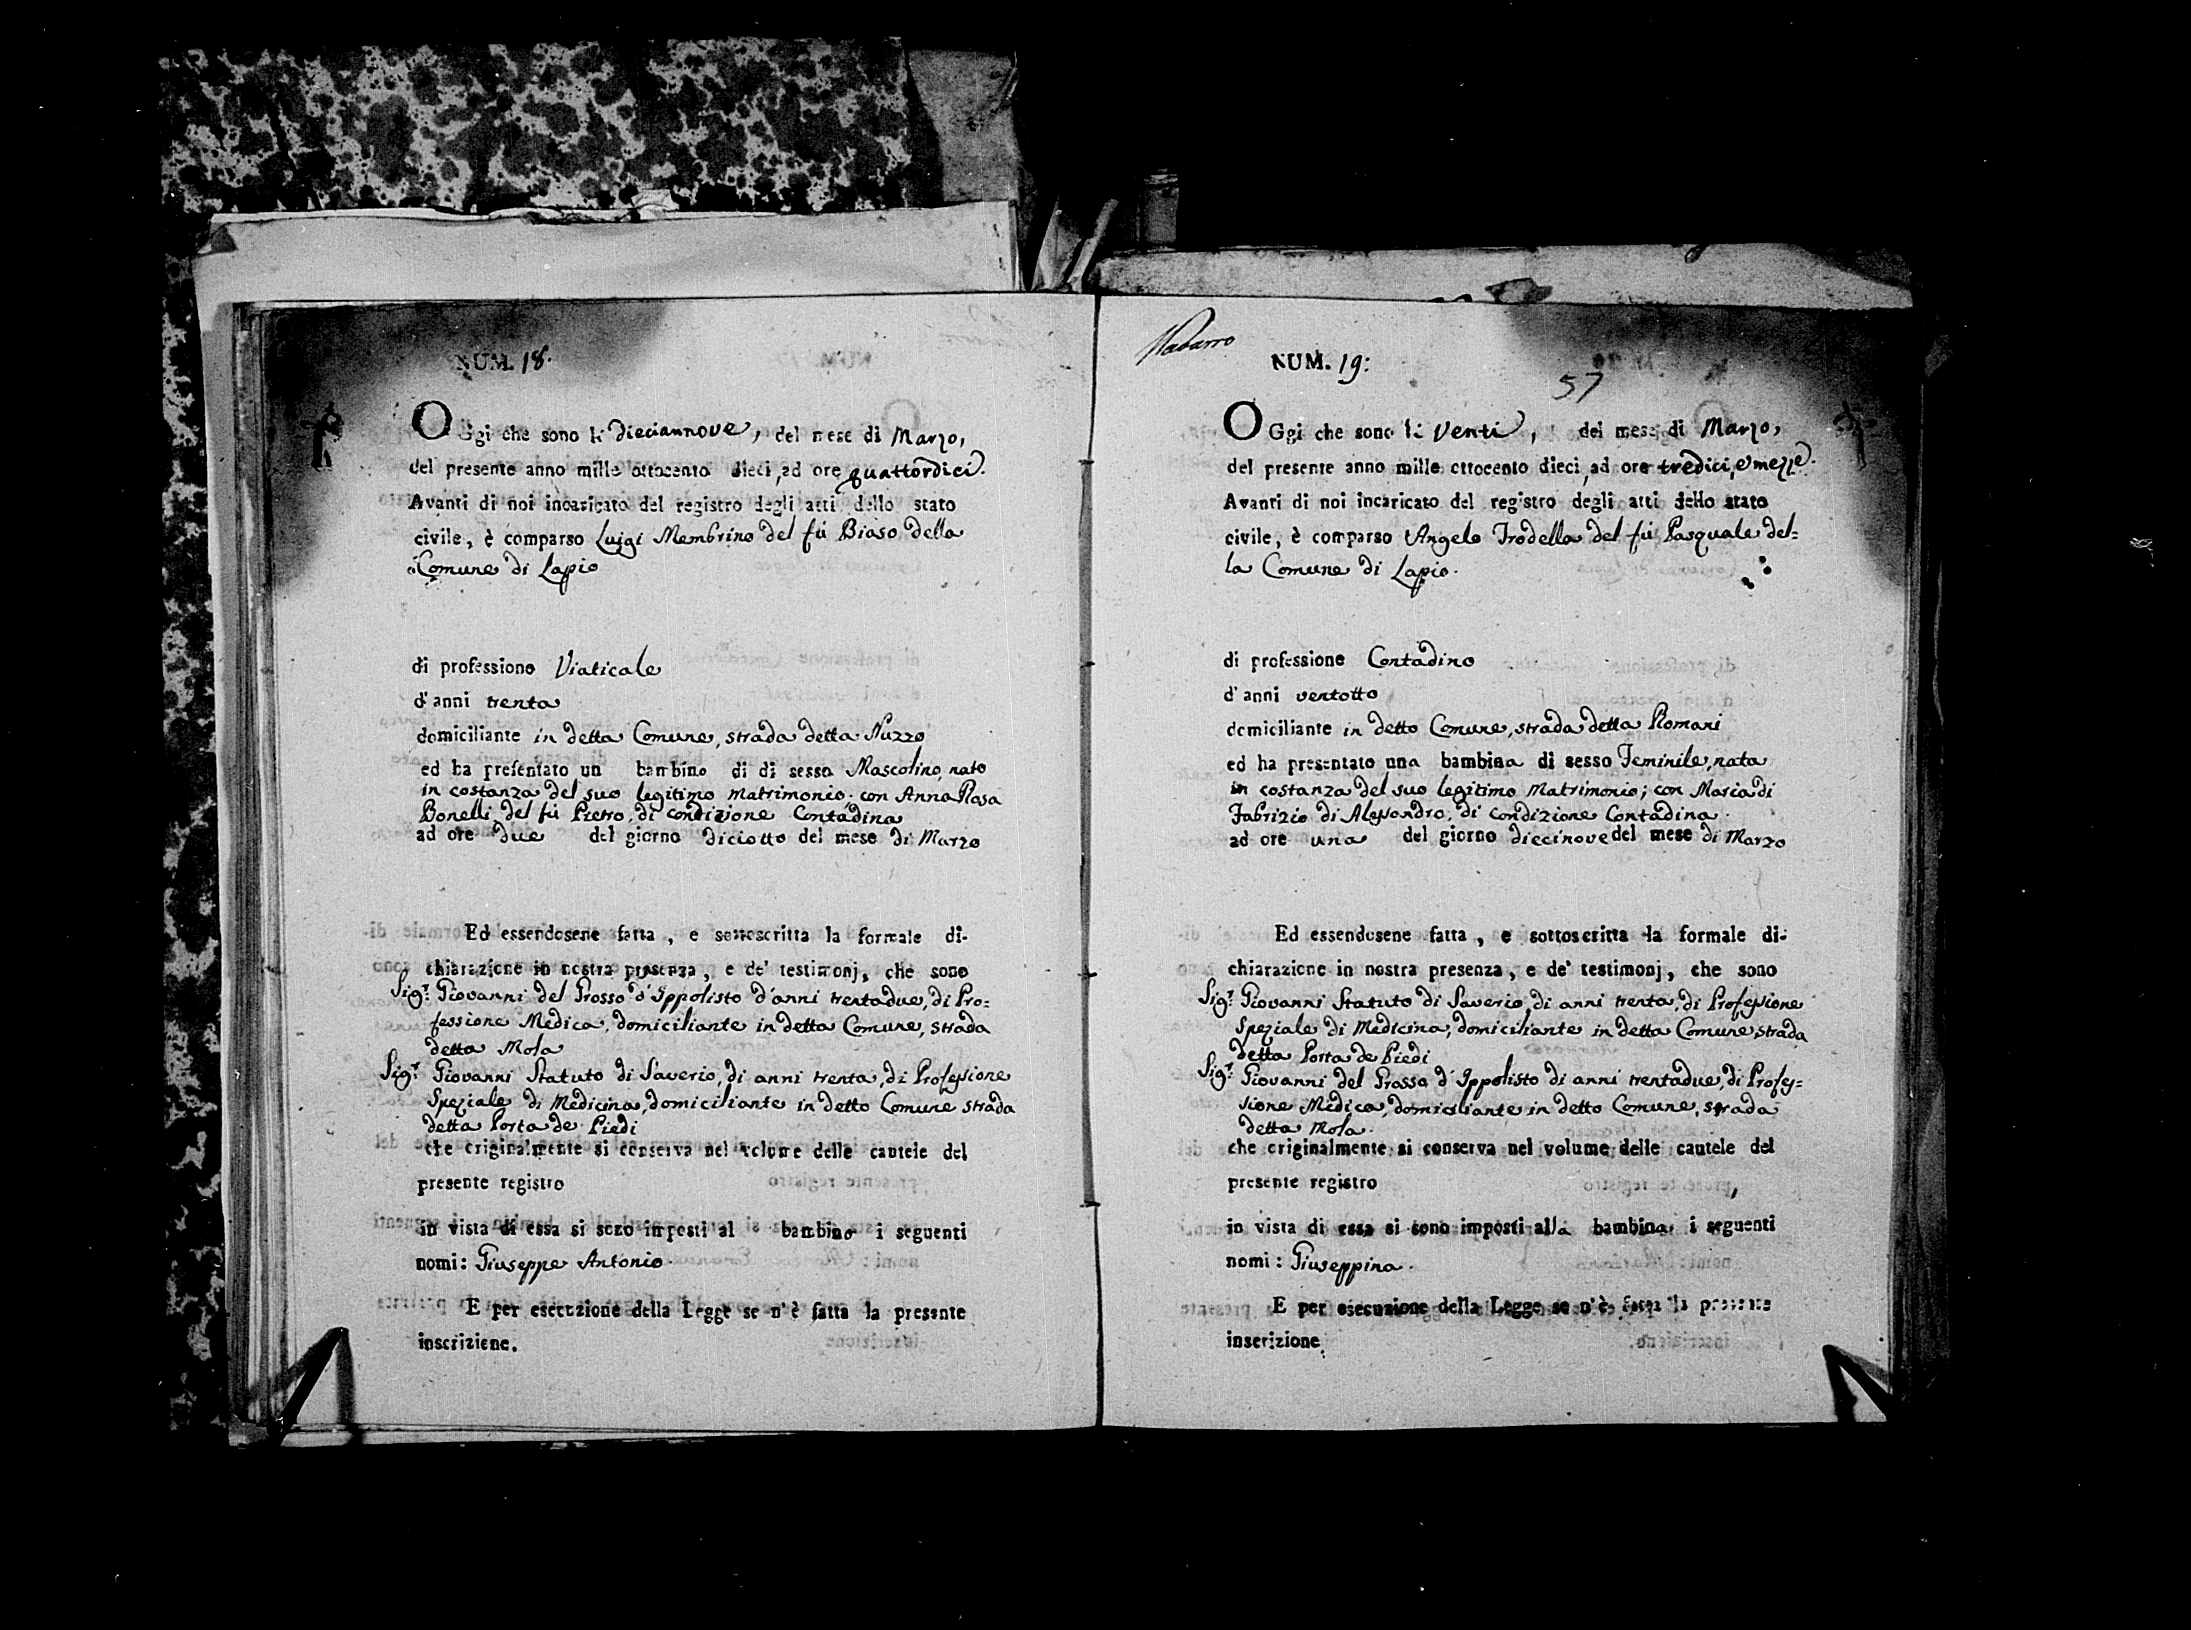 NUM. 18.
OGgi che sono li dieciannove, del mese di Marzo,
del presente anno mille ottocento dieci, ad ore quattordici.
Avanti di noi incaricato del registro degli atti dello stato
civile, è comparso Luigi Membrino del fù Biaso della
Comune di Lapio
di professione Viaticale
d'anni trenta
domiciliante in detta Comune, strada detta Nuzzo
ed ha presentato un bambino di di sesso Mascolino, nato
in costanza del suo legitimo matrimonio con Anna Rosa
Bonelli del fù Pietro, di condizione Contadina
ad ore due del giorno diciotto del mese di Marzo
Ed essendosene fatta, e sottoscritta la formale di-
chiarazione in nostra presenza, e de' testimonj, che sono
Sigr. Giovanni del Grosso d'Ippolisto d'anni trentadue, di Pro=
fessione Medica, domiciliante in detta Comune, strada
detta Mola
Sigr. Giovanni Statuto di Saverio, di anni trenta, di Professione
Speziale di Medicina, domiciliante in detto Comune strada
detta Porta de Piedi
che originalmente si conserva nel volume delle cautele del
presente registro
in vista di essa si sono imposti al bambino i seguenti
nomi: Giuseppe Antonio.
E per esecuzione della Legge se n'è fatta la presente
inscrizione.
Nabarro
NUM. 19:
57
OGgi che sono li Venti, del mese di Marzo,
del presente anno mille ottocento dieci, ad ore tredici, e mezze.
Avanti di noi incaricato del registro degli atti dello stato
civile, è comparso Angelo Trodella del fù Pasquale del=
la Comune di Lapio.
di professione Contadino
d'anni ventotto
domiciliante in detto Comune, strada detta Romani
ed ha presentato una bambina di sesso Feminile, nata
in costanza del suo legitimo matrimonio; con Maria di
Fabrizio di Alessandro, di condizione Contadina.
ad ore una del giorno diecinove del mese di Marzo
Ed essendosene fatta, e sottoscritta la formale di-
chiarazione in nostra presenza, e de' testimonj, che sono
Sigr. Giovanni Statuto di Saverio, di anni trenta, di Professione
Speziale di Medicina, domiciliante in detta Comune, strada
detta Porta de Piedi
Sigr. Giovanni del Grosso d'Ippolisto di anni trentadue, di Profes=
sione Medica, domiciliante in detto Comune, strada
detta Mola.
che originalmente si conserva nel volume delle cautele del
presente registro
in vista di essa si sono imposti alla bambina i seguenti
nomi: Giuseppina.
E per esecuzione della Legge se n'è fatta la presente
inscrizione.